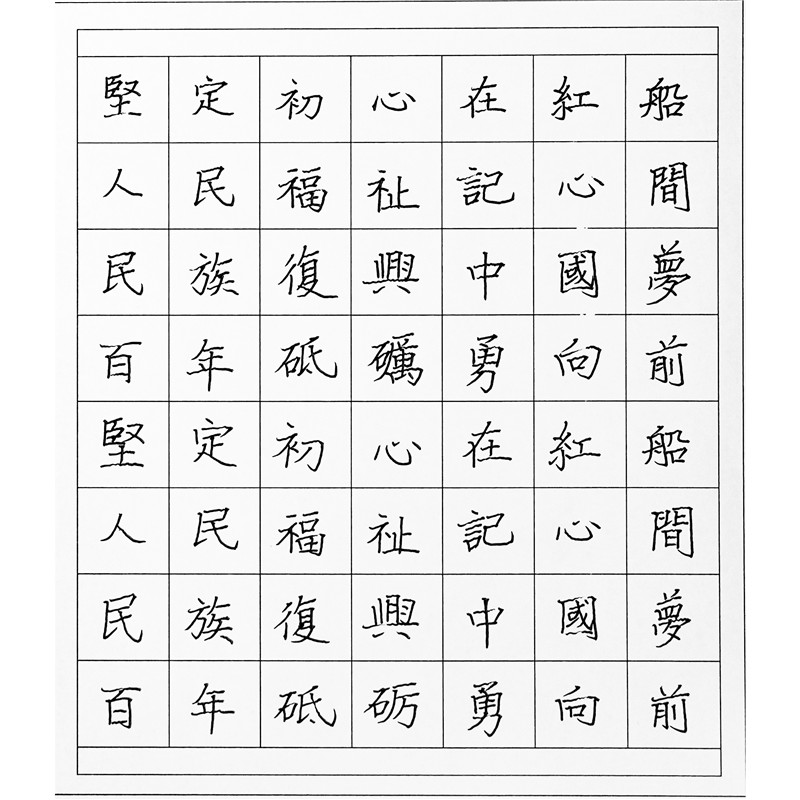 堅定初心在紅船
人民福祉記心間
民族復興中國夢
百年砥礪勇向前
堅定初心在紅船
人民福祉記心間
民族復興中國夢
百年砥砺勇向前